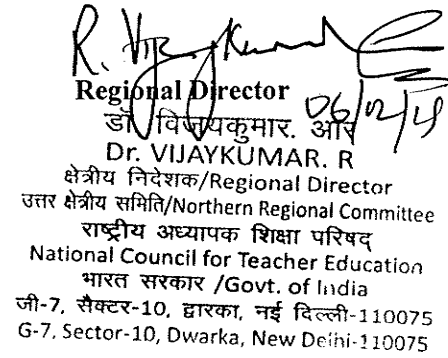 R. Vijaykumar
Regional Director
06/02/
डॉ विजयकुमार. आर
Dr. VIJAYKUMAR. R
क्षेत्रीय निदेशक/Regional Director
उत्तर क्षेत्रीय समिति/Northern Regional Committee
राष्ट्रीय अध्यापक शिक्षा परिषद्
National Council for Teacher Education
भारत सरकार /Govt. of India
जी-7, सैक्टर-10, द्वारका, नई दिल्ली-110075
G-7, Sector-10, Dwarka, New Delhi-110075